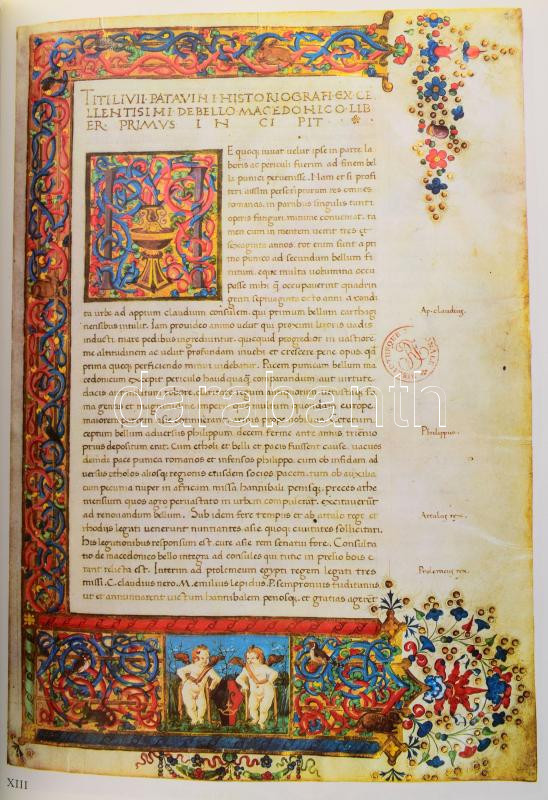 TITI LIVII PATAVINI HISTORIOGRAFI EXCE
LLENTISIMI DE BELLO MACEDONICO LIB
ER PRIMVS INCIPIT
E quoq; iuvat velut ipse in parte la
boris ac periculi fuerim ad finem bel
li punici pervenisse. Nam et si profi
teri ausim perscripturum res omnes
romanas, in partibus singulis tanti
operis fatigari minime conveniat: ta
men cum in mentem venit tres et
sexaginta annos, tot enim sunt a pri
mo punico ad secundum bellum fi
nitum, eque multa volumina occu
passe mihi q̃ occupaverint quadrin
genti septuaginta octo anni a condi
ta urbe ad appium claudium consulem, qui primum bellum carthagi
nensibus intulit. Iam provideo animo velut qui proximi litoris vadis
inducti mare pedibus ingrediuntur, quicquid progredior in vastiore
me altitudinem ac velut profundum invehi et crescere pene opus, qd
prima quoq; perficiendo minui videbatur. Pacem punicam bellum ma
cedonicum excipit periculo haud quaq̃ comparandum aut virtute
ducis aut militum robore, claritate regum antiquorum vetustaq; fa
ma gentis
maiorem partem asie
ceptum bellum adversus philippum decem ferme ante annis triennio
prius depositum erat. Cum etholi et belli et pacis fuissent cause. vacuos
deinde pace punica romanos et infensos philippo, cum ob infidam ad
versus etholos aliosq; regionis eiusdem socios pacem, tum ob auxilia
cum pecunia nuper in africam missa hannibali penisq;, preces athe
niensium quos agro pervastato in urbem compulerat, excitaverũt
ad renovandum bellum. Sub idem fere tempus et ab attalo rege et
rhodiis legati venerunt nuntiantes asie quoq; civitates sollicitari.
His legationibus responsum est cure asie rem senatui fore. Consulta
tio de macedonico bello integra ad consules qui tunc in prelio bois e
rant relicta est. Interim ad ptolemeum egypti regem legati tres
missi. C. claudius nero. M. emilius lepidus. P. sempronius tuditanus,
ut et annuntiarent victum hannibalem penosq;, et gratias agerēt
Ap. claudius.
Philippus.
Attalus rex.
Ptolemeus rex.
darabanth
XIII